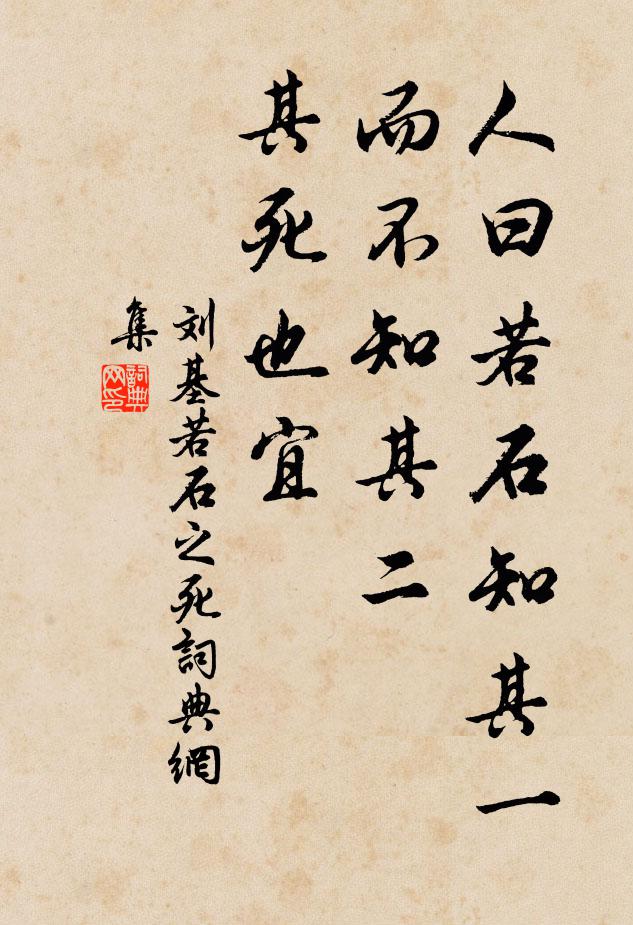 人曰若石知其一
而不知其二
其死也宜
刘基若石之死詞典網
集
詞典
网印